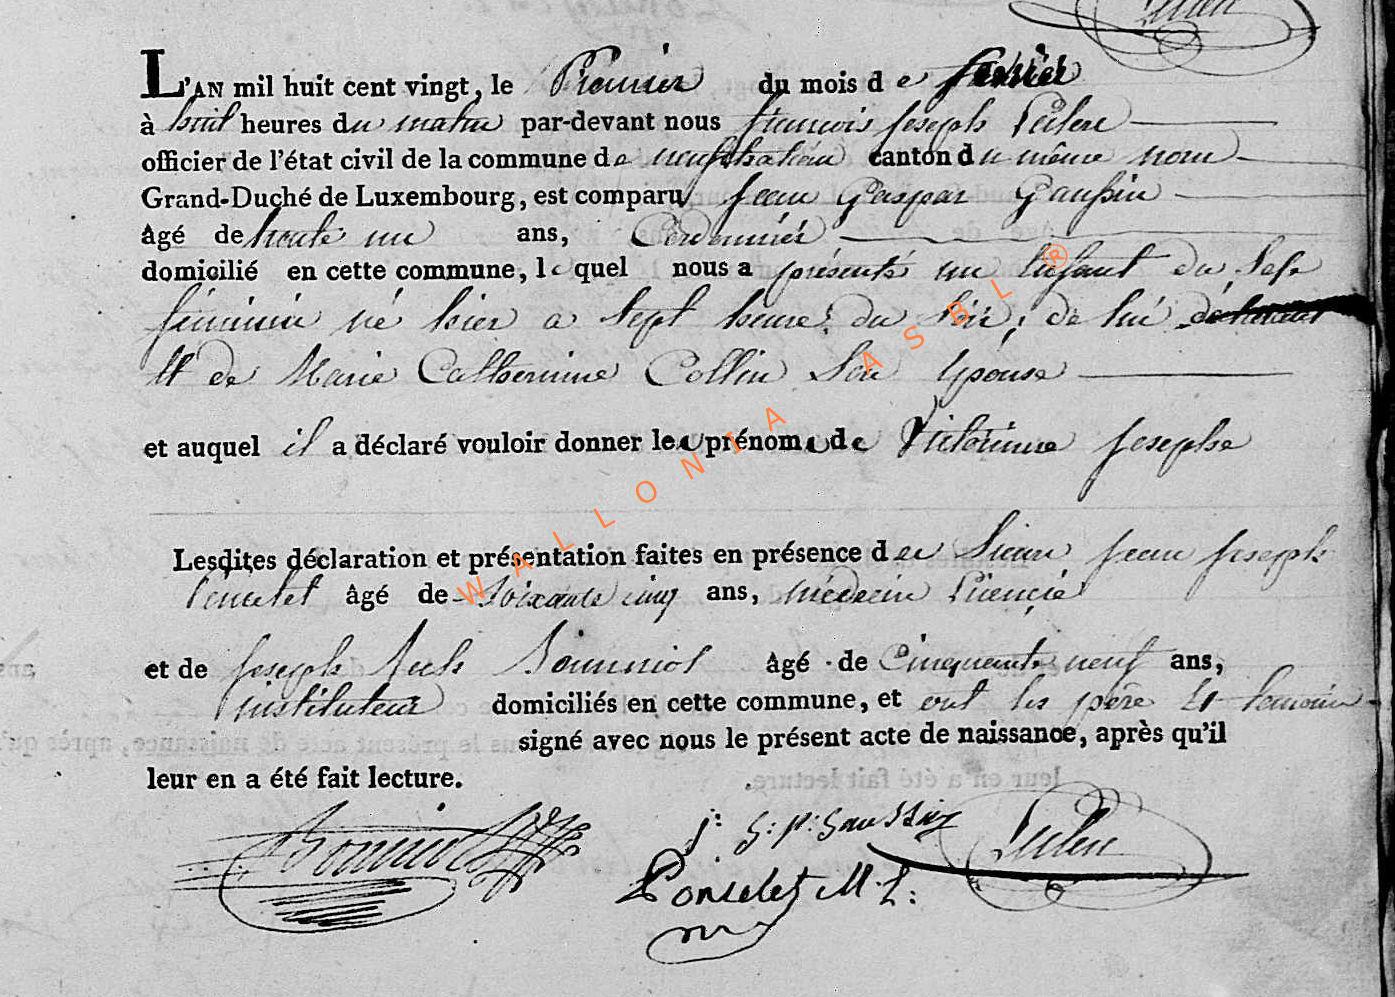 L'AN mil huit cent vingt, le Premier du mois de fevrier
à huit heures du matin par-devant nous françois joseph
officier de l'état civil de la commune de neufchateau canton du même nom
Grand-Duché de Luxembourg, est comparu jean Gaspar Gaussin
âgé de trente un ans, Cordonnier
domicilié en cette commune, le quel nous a présenté un Enfant du Sexe
féminin né hier a Sept heures du Soir, de lui
Et de Marie Catherinne Collin Son Epouse
et auquel il a déclaré vouloir donner les prénoms de Victorinne josephe
Lesdites déclaration et présentation faites en présence des Sieur jean joseph
Poncelet âgé de Soixante cinq ans, médecin Licencié
et de joseph Bonniot âgé de Cinquante neuf ans,
instituteur domiciliés en cette commune, et ont les père Et temoins
signé avec nous le présent acte de naissance, après qu'il
leur en a été fait lecture.
Bonniot j: G: p: Gaussin
Poncelet M. L:
WALLONIA ASBL ®